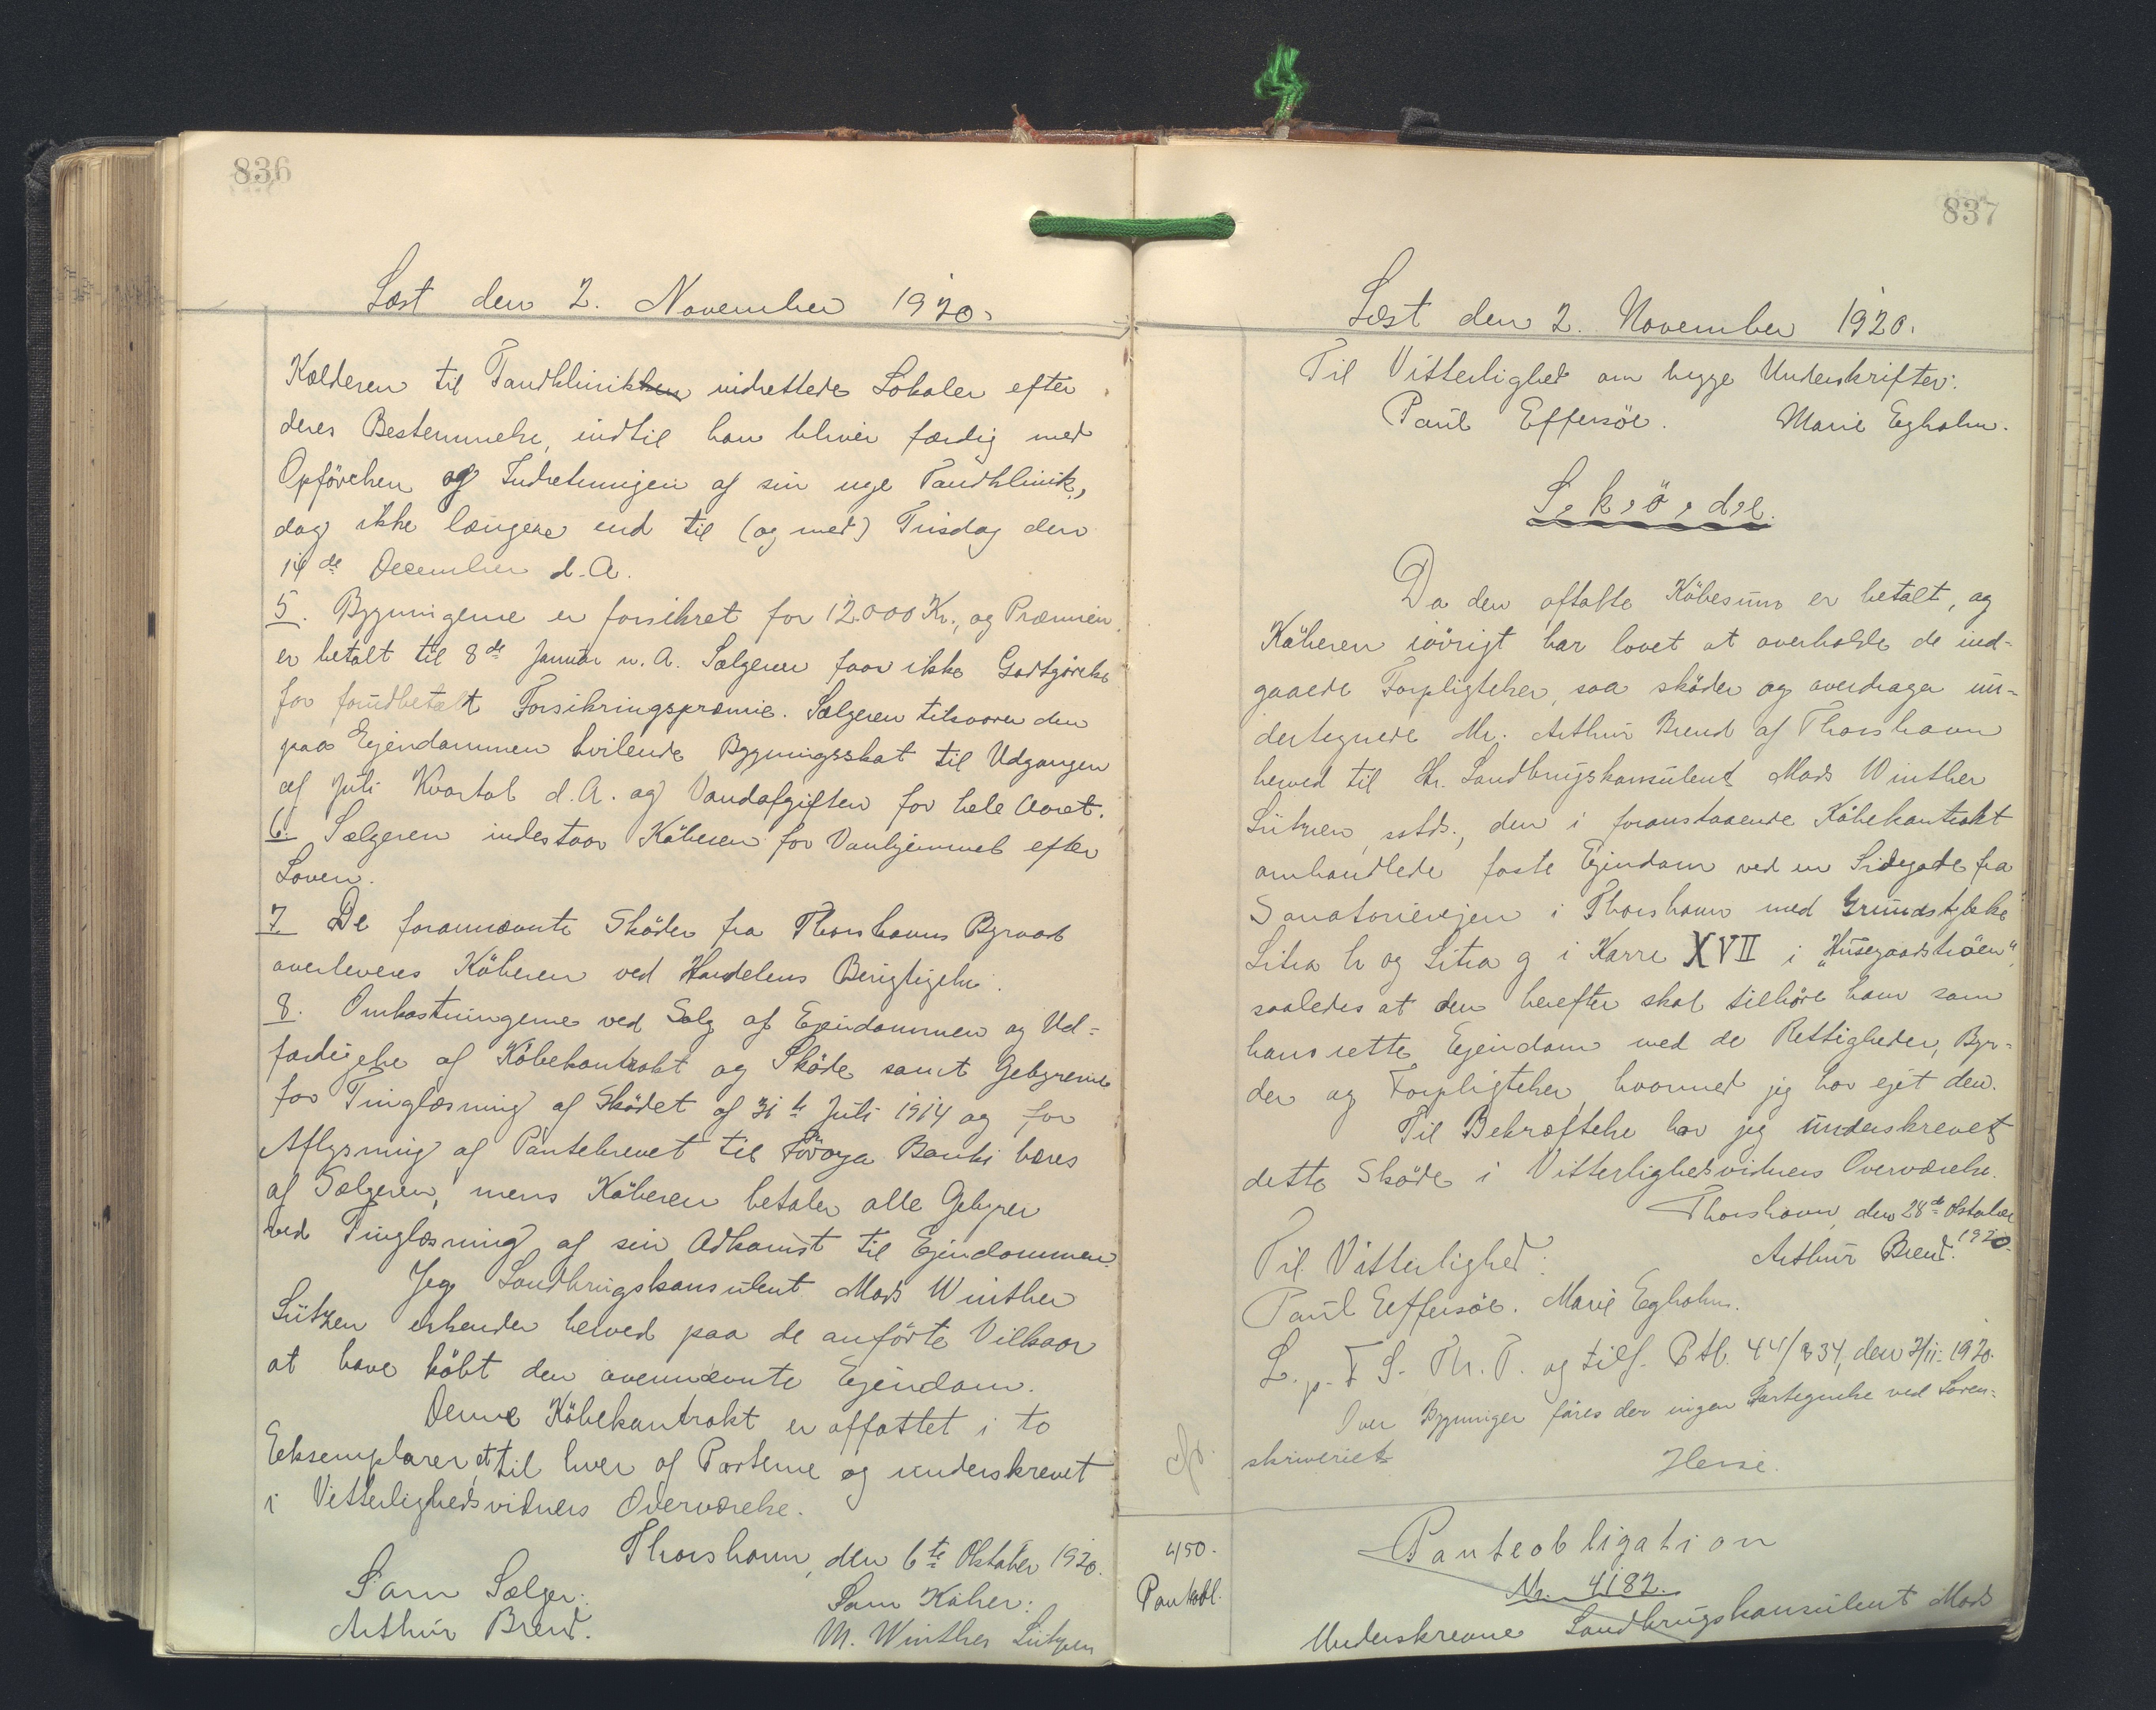 836
Læst den 2. November 1920.
Kælderen til Tandklinikken indrettede Lokaler efter
deres Bestemmelse, indtil han bliver færdig med
Opførelsen og Indretningen af sin nye Tandklinik,
dog ikke længere end til (og med) Tirsdag den
14de December d. A.
5. Bygningerne er forsikret for 12.000 Kr., og Præmien
er betalt til 8de Januar n. A. Sælgeren faar ikke Godtgörelse
for forudbetalt Forsikringspræmie. Sælgeren tilsvarer den
paa Ejendommen hvilende Bygningsskat til Udgangen
af Juli Kvartal d. A. og Vandafgiften for hele Aaret.
6. Sælgeren indestaar Köberen for Vanhjemmel efter
Loven.
7. De forannævnte Sköder fra Thorshavns Byraad
overleveres Köberen ved Handelens Berigtigelse.
8. Omkostningerne ved Salg af Ejendommen og Ud=
færdigelse af Köbekontrakt og Sköde samt Gebyrerne
for Tinglæsning af Sködet af 31te Juli 1914 og for
Aflysning af Pantebrevet til Föroya Banki bæres
af Sælgeren, mens Köberen betaler alle Gebyrer
ved Tinglæsning af sin Adkomst til Ejendommen.
Jeg Landbrugskonsulent Mads Winther
Lützen erkender herved paa de anförte Vilkaar
at have köbt den ovennævnte Ejendom.
Denne Köbekontrakt er affattet i to
Eeksemplarer et til hver af Parterne og underskrevet
i Vitterlighedsvidners Overværelse.
Thorshavn, den 6te Oktober 1920.
Som Sælger: Som Köber:
Arthur Brend. M. Winther Lützen
837
Læst den 2. November 1920.
Til Vitterlighed om begge Underskrifter:
Paul Effersöe. Marie Egholm.
S, k, ö, d, e.
Da den aftalte Köbesum er betalt, og
Köberen iövrigt har lovet at overholde de ind-
gaaede Forpligtelser, saa sköder og overdrager un=
dertegnede Mr. Arthur Brend af Thorshavn
herved til Hr. Landbrugskonsulent Mads Winther
Lützen, sstds., den i foranstaaende Köbekontrakt
omhandlede faste Ejendom ved en Sidegade fra
Sanatorievejen i Thorshavn med Grundstykke
Litra h og Litra g i Karre XVII i "Húsegaardströen",
saaledes at den herefter skal tilhöre ham som
hans rette Ejendom med de Rettigheder, Byr=
der og Forpligtelser, hvormed jeg har ejet den.
Til Bekræftelse har jeg underskrevet
dette Sköde i Vitterlighedsvidners Overværelse.
Thorshavn, den 28de Oktober
1920.
Til Vitterlighed: Arthur Brend.
Paul Eeffersöe. Marie Egholm.
L. p. F S. Th. T. og tilf. Ptb. 44/834, den 2/11- 1920.
Over Bygninger föres der ingen Fortegnelse ved Soren=
skriveriet
450.
Pantobl.
Panteobligation
No. 4182.
Underskrevne Landbrugskonsulent Mads